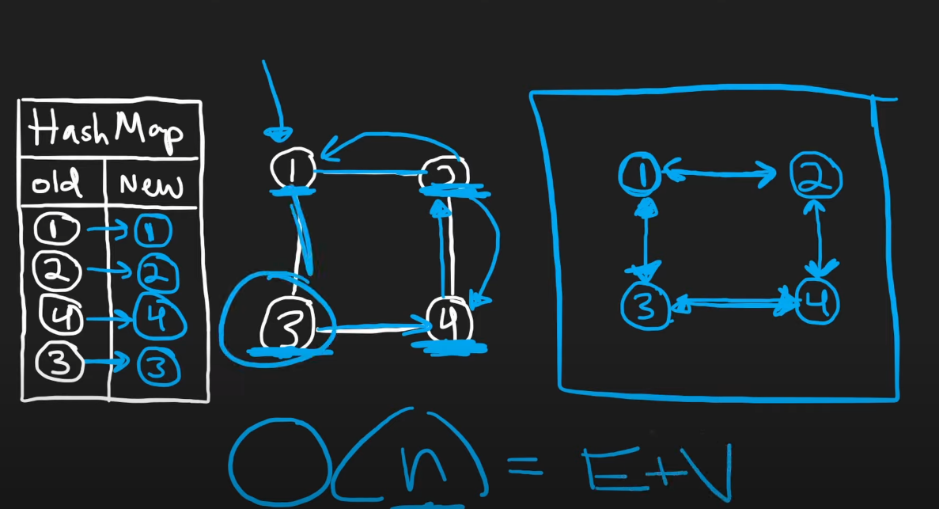 HashMap
old New
1 1
2 2
4 4
3 3
1 2
3 4
1 2
3 4
O(n) = E+V